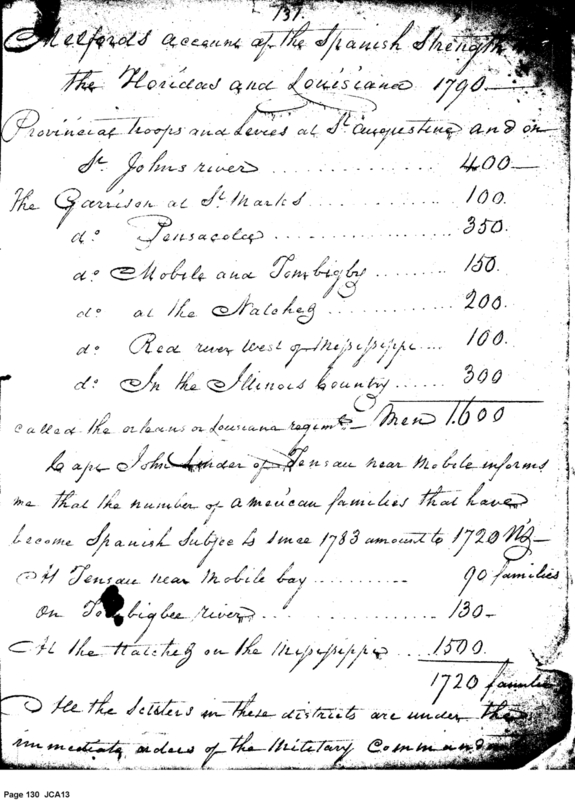 131.
Melford's account of the Spanish Strength
the Floridas and Louisiana 1790
Provincial troops and Levies at St. Augustine and on
St. Johns river ............... 400
The Garrison at St. Marks ......... 100.
do. Pensacola ............... 350.
do. Mobile and Tombigby ......... 150.
do. at the Natchez ............ 200
do. Red river West of Missisippi .... 100.
do. In the Illinois Country ...... 300
called the orleans or Louisiana regimt. Men 1.600
Capt John Linder of Tensau near Mobile informs
me that the number of american families that have
become Spanish Subjects since 1783 amount to 1720 Viz
At Tensau near Mobile bay .......... 90 families
On Tombigbee river ............... 130
At the Natchez on the Missisippi ... 1500.
1720 families
All the Settlers in these districts are under the
immediate orders of the Military Command
Page 130 JCA13